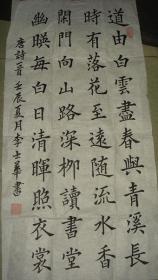 道由白雲盡春與青溪長
時有落花至遠隨流水香
閑門向山路深柳讀書堂
幽暎每白日清暉照衣裳
唐詩一首 壬辰夏月李士華書